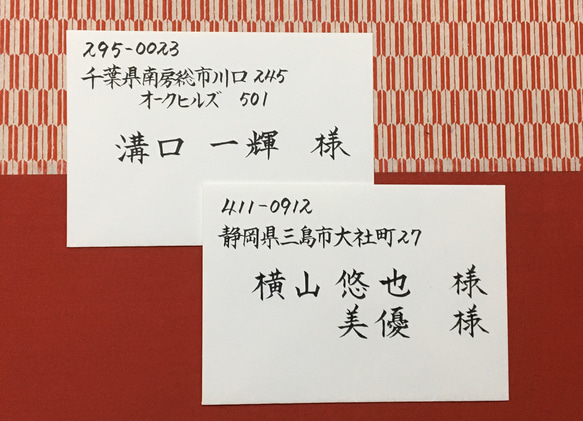 295-0023
千葉県南房総市川口245
オークヒルズ 501
溝口 一輝 様
411-0912
静岡県三島市大社町27
横山 悠也 様
美優 様